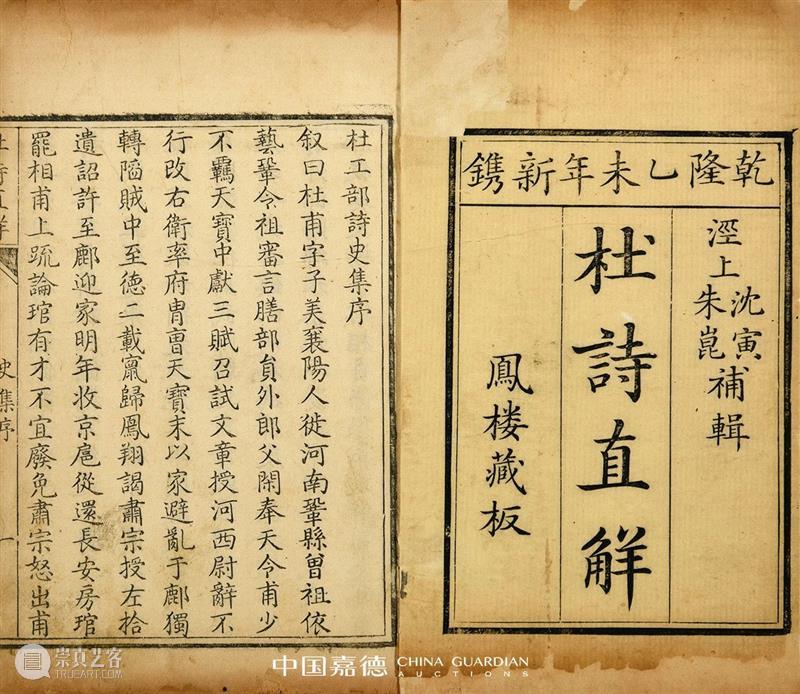 乾隆乙未年新鐫
涇上沈寅朱崑補輯
杜詩直觧
鳳楼藏板
杜工部詩史集序
叙曰杜甫字子美襄陽人徙河南鞏縣曾祖依
藝鞏令祖審言膳部貟外郎父閑奉天令甫少
不羈天寶中獻三賦召試文章授河西尉辭不
行改右衛率府胄曹天寶末以家避亂于鄜獨
轉陷賊中至德二載竄歸鳳翔謁肅宗授左拾
遺詔許至鄜迎家明年收京扈從還長安房琯
罷相甫上疏論琯有才不宜廢免肅宗怒出甫
史集序
一
中国嘉德 CHINA GUARDIAN
AUCTIONS
崇真艺客
TRUEART.COM